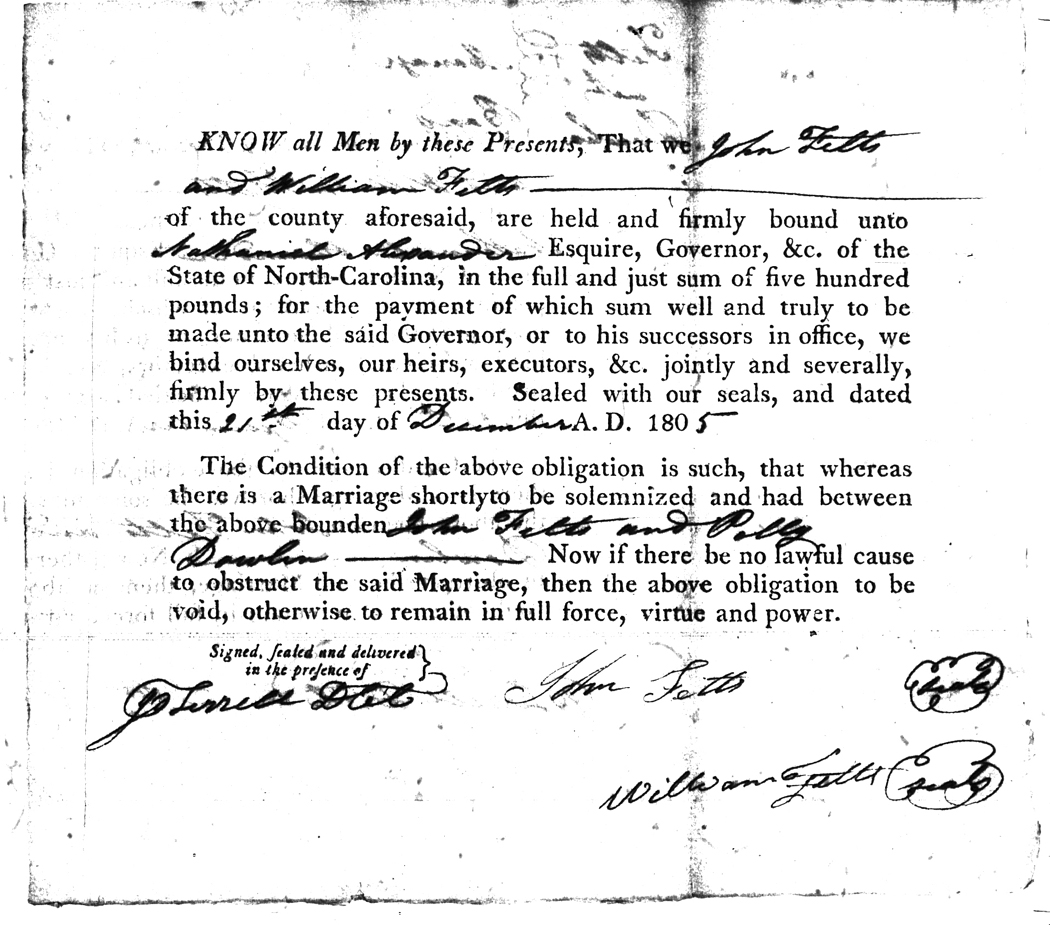 KNOW all Men by these Presents, That we John Fetts
and William Fetts
of the county aforesaid, are held and firmly bound unto
Nathaniel Alexander Esquire, Governor, &c. of the
State of North-Carolina, in the full and just sum of five hundred
pounds; for the payment of which sum well and truly to be
made unto the said Governor, or to his successors in office, we
bind ourselves, our heirs, executors, &c. jointly and severally,
firmly by these presents. Sealed with our seals, and dated
this 21st day of Desember A. D. 1805
The Condition of the above obligation is such, that whereas
there is a Marriage shortlyto be solemnized and had between
the above bounden John Fetts and Polly
Dowlin Now if there be no lawful cause
to obstruct the said Marriage, then the above obligation to be
void, otherwise to remain in full force, virtue and power.
Signed, sealed and delivered
in the presence of
Terrell John Fetts seal
William Fetts seal